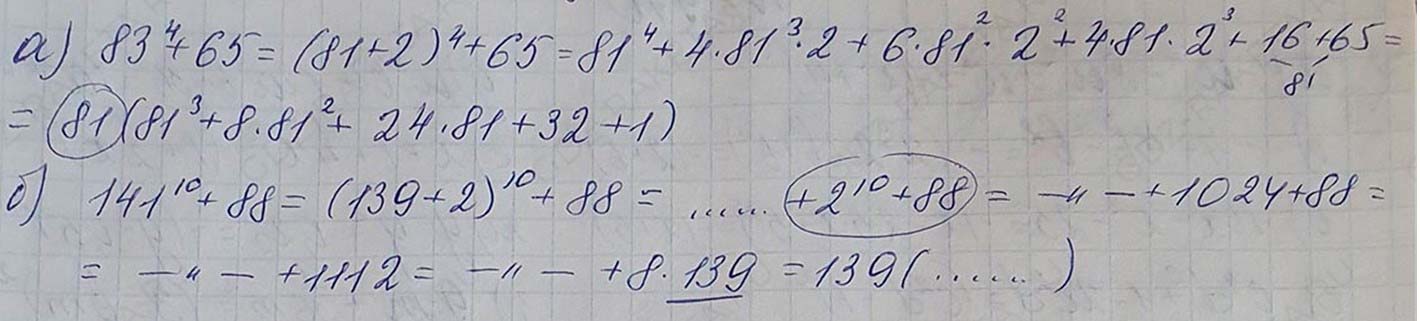 а) 83⁴+65 = (81+2)⁴+65 = 81⁴+4·81³·2+6·81²·2²+4·81·2³+16+65=
81
= 81(81³+8·81²+24·81+32+1)
б) 141¹⁰+88 = (139+2)¹⁰+88 = ...... +2¹⁰+88 = —〃— +1024+88 =
= —〃— +1112 = —〃— +8·139 = 139(......)